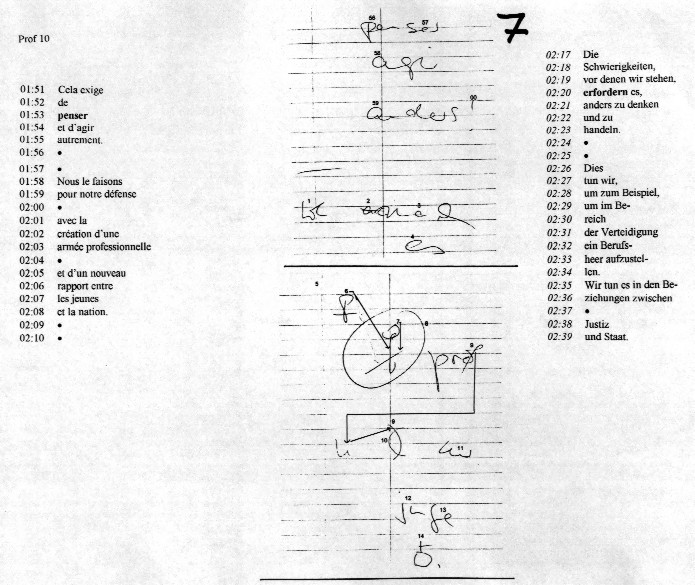 Prof 10
01:51 Cela exige
01:52 de
01:53 penser
01:54 et d'agir
01:55 autrement.
01:56 •
01:57 •
01:58 Nous le faisons
01:59 pour notre défense
02:00 •
02:01 avec la
02:02 création d'une
02:03 armée professionnelle
02:04 •
02:05 et d'un nouveau
02:06 rapport entre
02:07 les jeunes
02:08 et la nation.
02:09 •
02:10 •
7
56 57
penses
58
agi
59 00
anders
1 2 3
4
5 6
7 8
8
pro
9
10
11
12 13
14
02:17 Die
02:18 Schwierigkeiten,
02:19 vor denen wir stehen,
02:20 erfordern es,
02:21 anders zu denken
02:22 und zu
02:23 handeln.
02:24 •
02:25 •
02:26 Dies
02:27 tun wir,
02:28 um zum Beispiel,
02:29 um im Be-
02:30 reich
02:31 der Verteidigung
02:32 ein Berufs-
02:33 heer aufzustel-
02:34 len.
02:35 Wir tun es in den Be-
02:36 ziehungen zwischen
02:37 •
02:38 Justiz
02:39 und Staat.